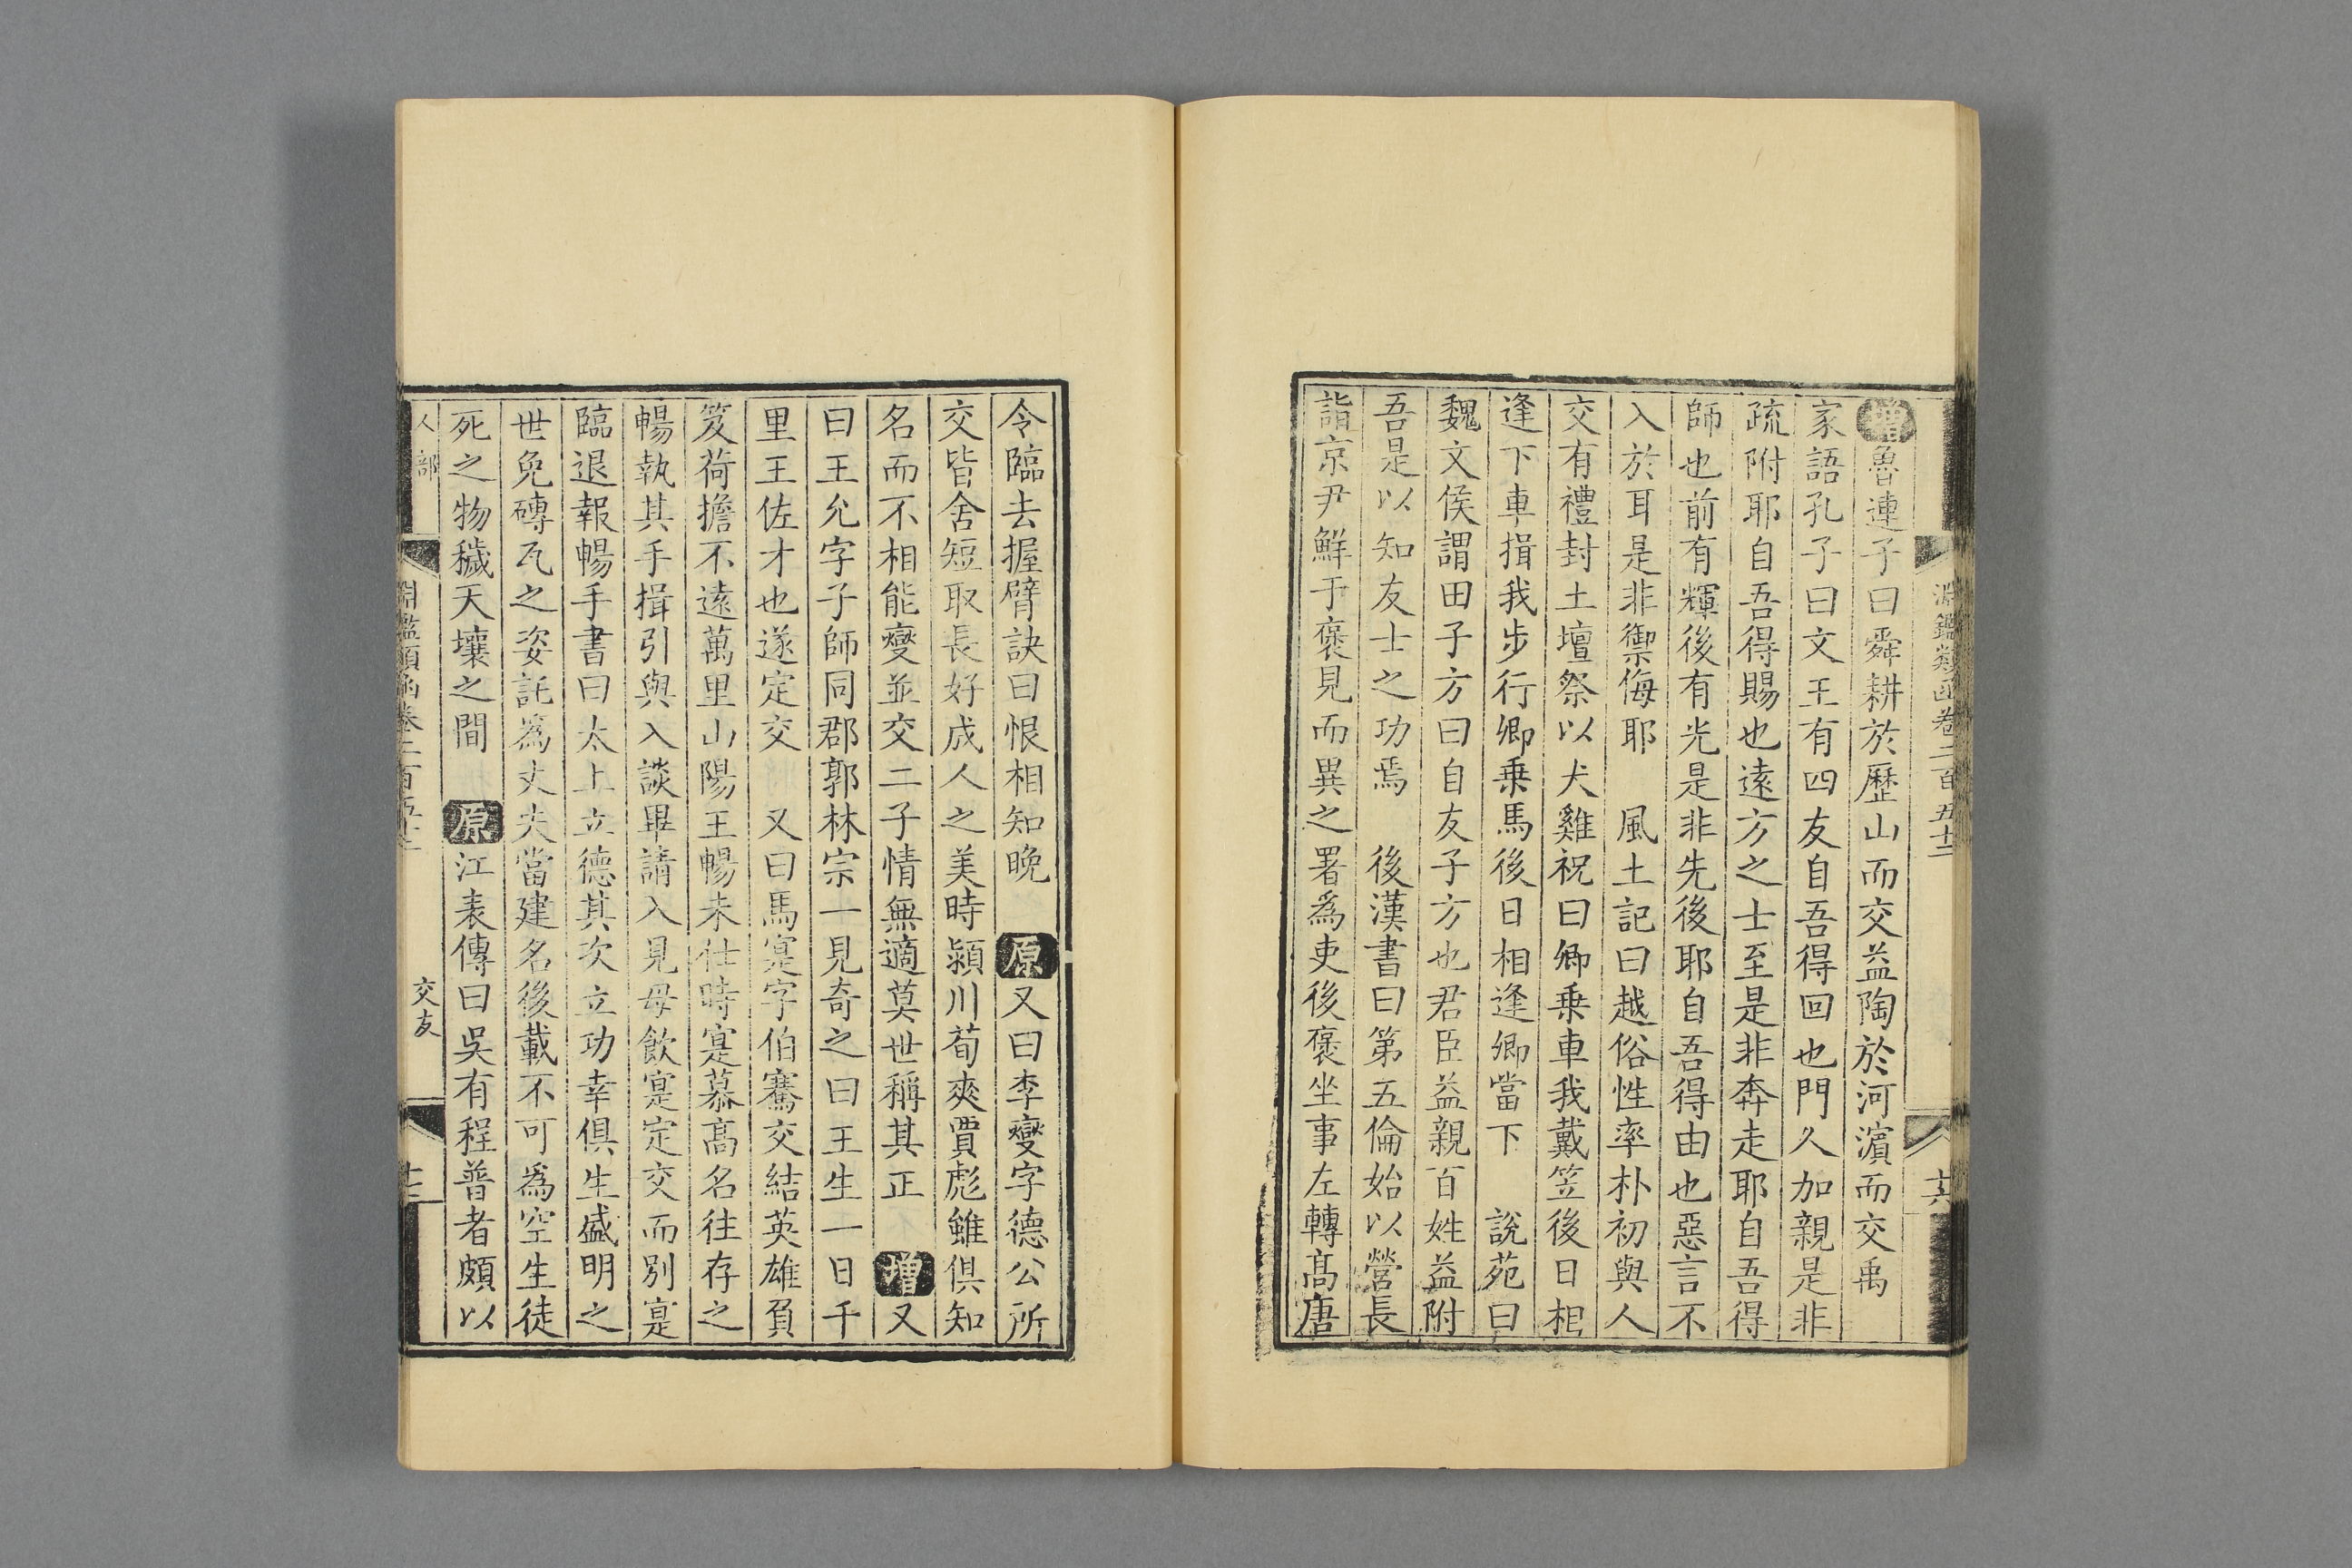 淵鑑類函卷二百五十二
十六
增魯連子曰舜耕於歷山而交益陶於河濵而交禹
家語孔子曰文王有四友自吾得回也門人加親是非
疏附耶自吾得賜也遠方之士至是非奔走耶自吾得
師也前有輝後有光是非先後耶自吾得由也惡言不
入於耳是非禦侮耶　風土記曰越俗性率朴初與人
交有禮封土壇祭以犬雞祝曰卿乗車我戴笠後日相
逢下車揖我步行卿乗馬後日相逢卿當下　說苑曰
魏文侯謂田子方曰自友子方也君臣益親百姓益附
吾是以知友士之功焉　後漢書曰第五倫始以營長
詣京尹鮮于褒見而異之署為吏後褒坐事左轉髙唐
令臨去握臂訣曰恨相知晚　原又曰李燮字德公所
交皆舍短取長好成人之美時潁川荀爽賈彪雖俱知
名而不相能燮並交二子情無適莫世稱其正　增又
曰王允字子師同郡郭林宗一見奇之曰王生一日千
里王佐才也遂定交　又曰馬寔字伯騫交結英雄負
笈荷擔不遠萬里山陽王暢未仕時寔慕髙名往存之
暢執其手揖引與入談畢請入見母飲寔定交而別寔
臨退報暢手書曰太上立德其次立功幸俱生盛明之
世免磚瓦之姿託為丈夫當建名後載不可為空生徒
死之物穢天壤之間　原江表傳曰吳有程普者頗以
人部
淵鑑類函卷二百五十二
交友